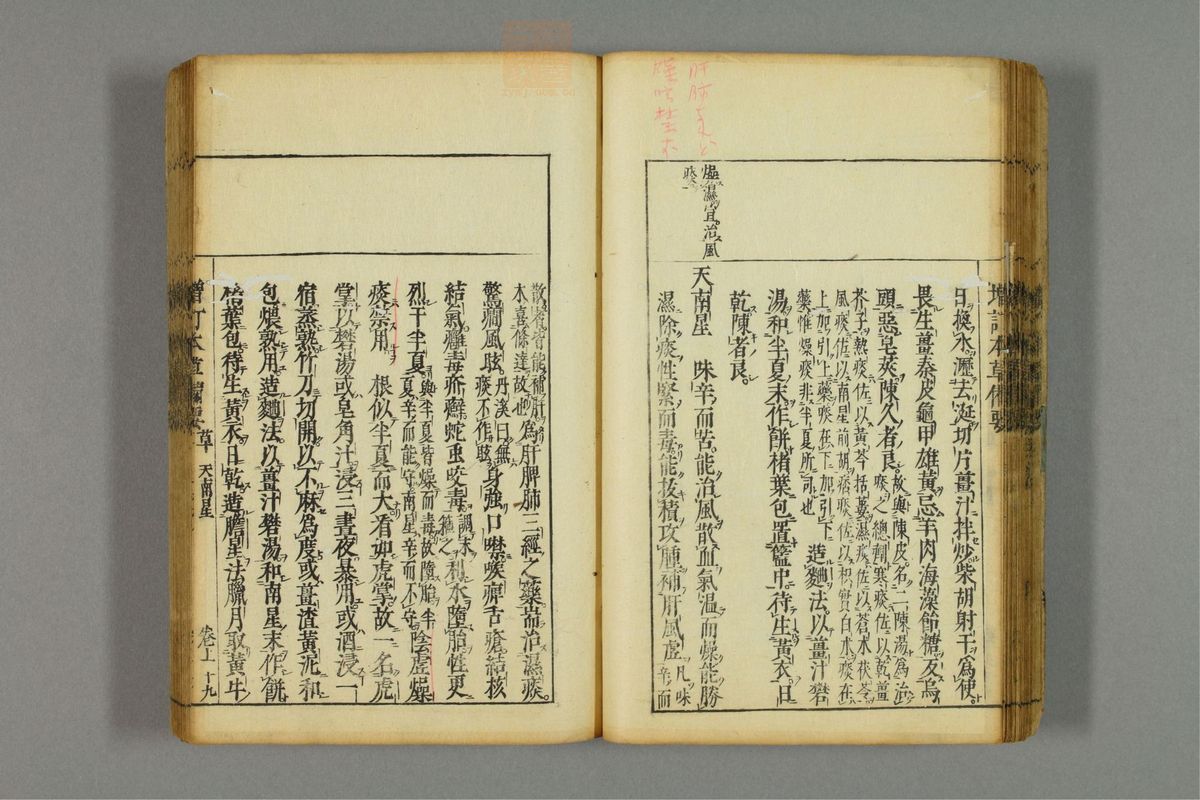 燥濕宜治風
痰
日換水瀝去涎切片薑汁拌炒柴胡射干爲使
畏生薑秦皮龜甲雄黃忌羊肉海藻飴糖反烏
頭惡皂莢陳久者良故與陳皮名二陳湯爲治
痰之總劑寒痰佐以乾薑
芥子熱痰佐以黃芩括蔞濕痰佐以蒼朮茯苓
風痰佐以南星前胡痞痰佐以枳實白朮痰在
上加引上藥痰在下加引下
藥惟燥痰非半夏所司也 造麯法以薑汁礬
湯和半夏末作餅楮葉包置籃中待生黃衣日
乾陳者良
天南星 味辛而苦能治風散血氣溫而燥能勝
濕除痰性緊而毒能拔積攻腫補肝風虛凡味
辛而
散者皆能補肝
木喜條達故也爲肝脾肺三經之藥耑治濕痰
驚癇風眩丹溪曰無
痰不作眩身強口噤喉痹舌瘡結核
結氣癰毒疥癬蛇虫咬毒調末
箍之利水墮胎性更
烈于半夏與半夏皆燥而毒故墮胎半
夏辛而能守南星辛而不守陰虛燥
痰禁用 根似半夏而大看如虎掌故一名虎
掌以礬湯或皂角汁浸三晝夜暴用或酒浸一
宿蒸熟竹刀切開以不麻爲度或薑渣黃泥和
包煨熟用造麯法以薑汁礬湯和南星末作餅
楮葉包待生黃衣日乾造膽星法臘月取黃牛
草 天南星
卷上 十九